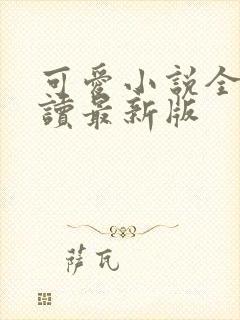 可愛小説全
讀最新版
萨瓦